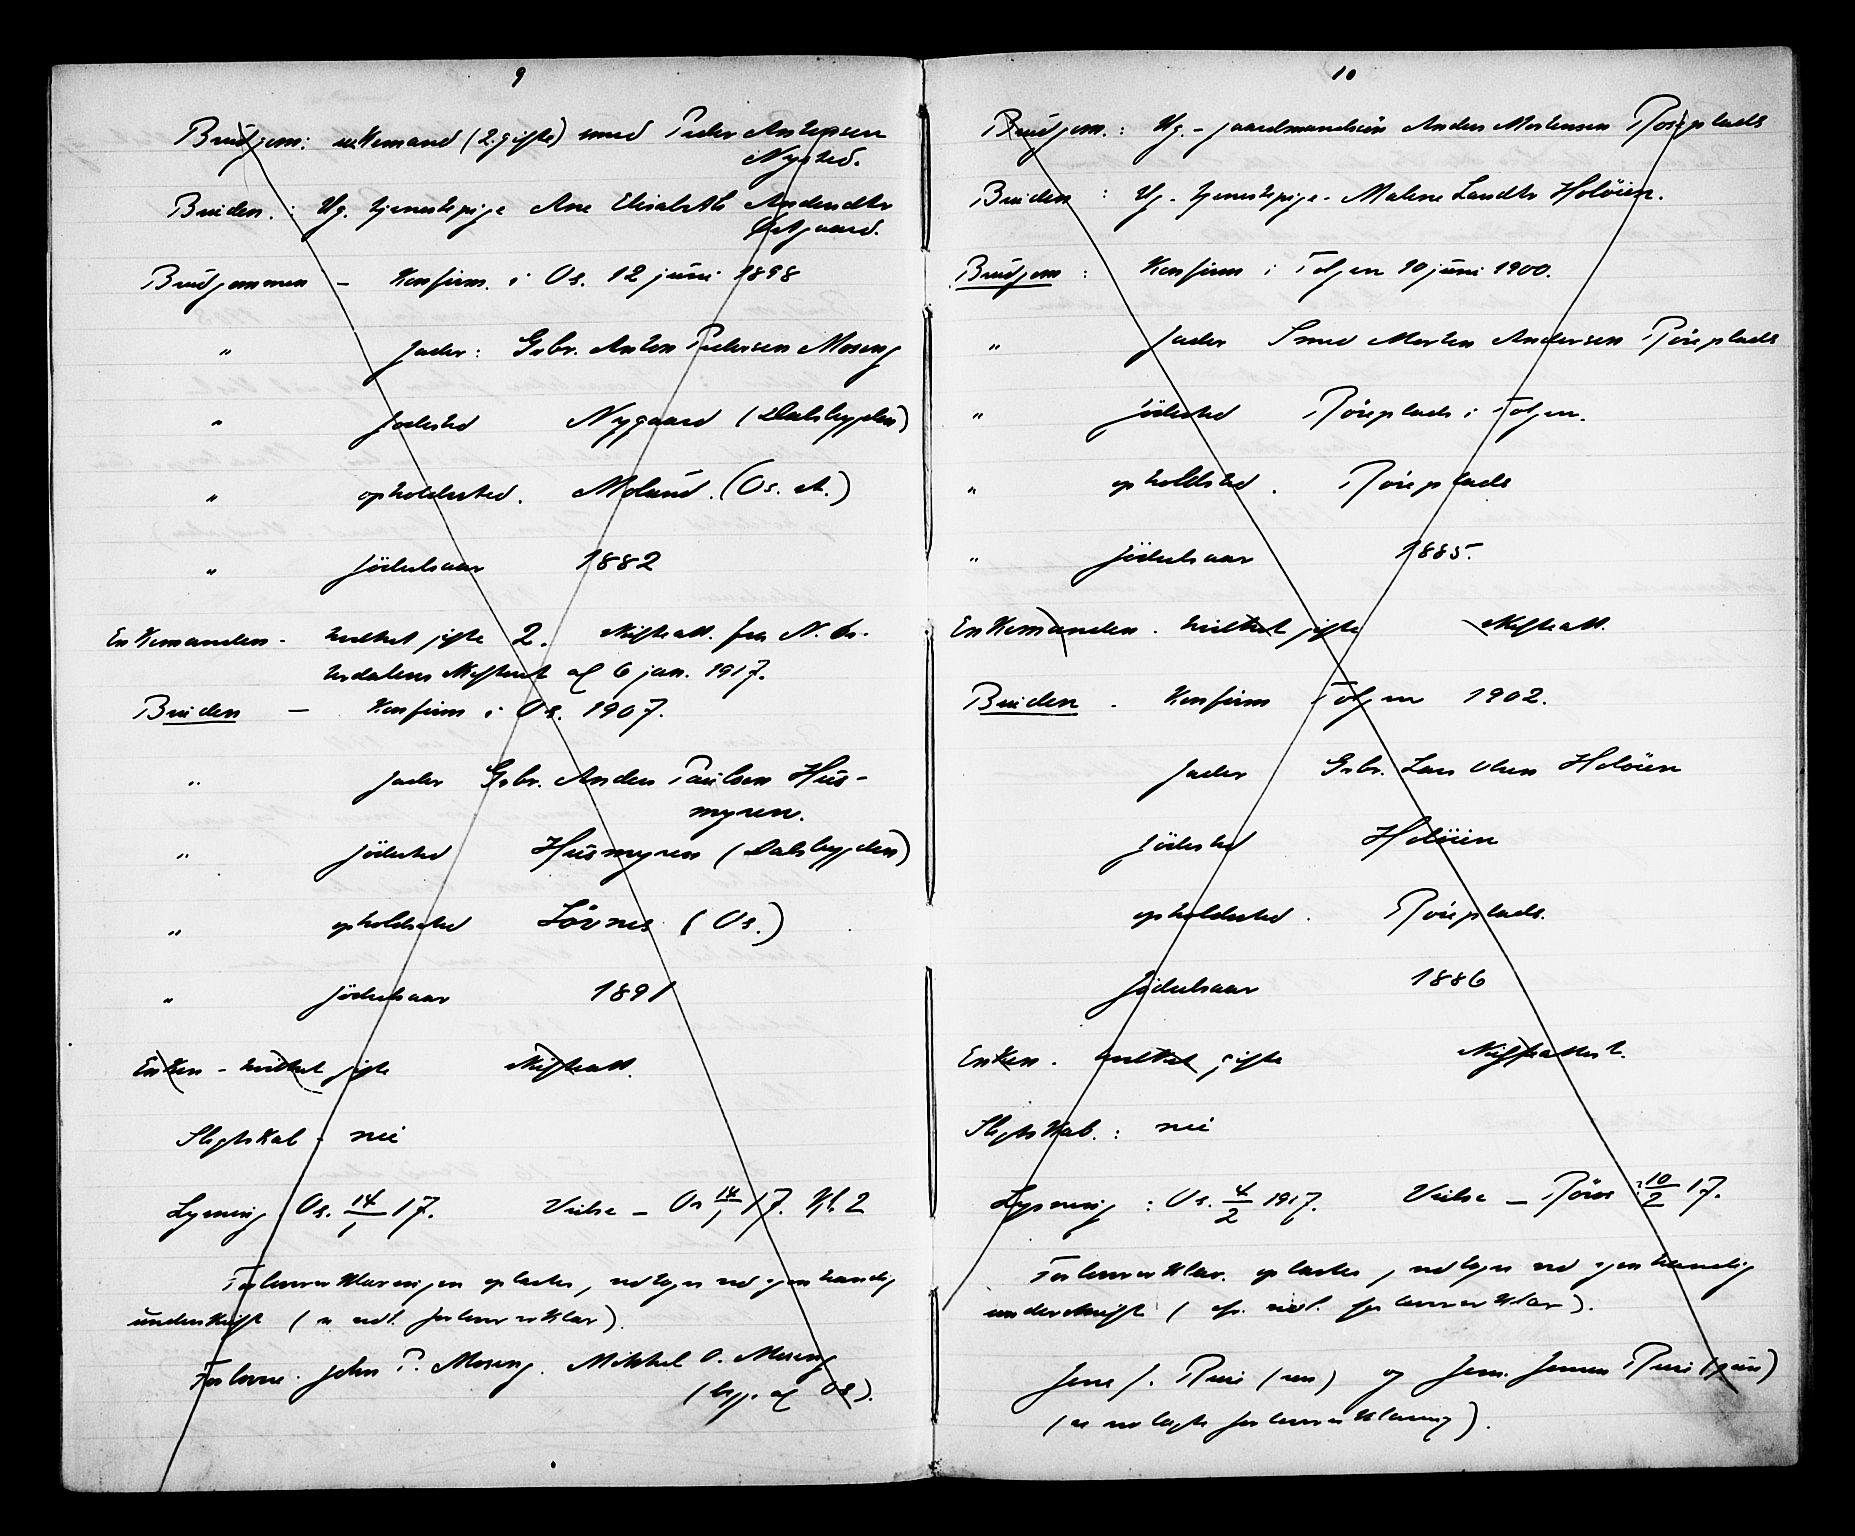 9
Brudgom: enkemand (2. gifte) smed Peder Antonsen
Nysted.
Bruden: Ug. tjenestepige Ane Elisabeth Andersdtr
Østgaard.
Brudgommen - Konfirm. i Os. 12 juni 1898
" fader: Gbr. Anton Pedersen Moseng
" fødested Nygaard (Dalsbygden)
" opholdssted. Moland. (Os. A.)
" fødselsaar 1882
Enkemanden - hvilket gifte 2. Skifteatt. fra N. Øs-
terdalens Skifteret af 6 jan. 1917.
Bruden - Konfirm i Os. 1907.
" fader Gbr. Anders Paulsen Hus-
myren.
" födested Husmyren (Dalsbygden)
" opholdssted Lövnes (Os.)
" födselsaar 1891
Enken - hvilket gifte Skifteatt.
Slegtskab - nei
Lysning Os. 14/1 17. Vielse - Os 14/1 17. Kl. 2
Forloverklæringen oplæstes, vedtages ved egenhændig
underskrift (se vedl. forloverklær).
Forlovere. John P. Moseng. Mikkel O. Moseng
(begge af Os).
10
Brudgom. : Ug. - gaardmandssön Anders Mortensen Röseplads
Bruden : Ug. tjenestepige - Malene Larsdtr Holöien.
Brudgom : Konfirm i Tolgen 10 juni 1900.
" fader Smed Morten Andersen Röseplads
" födested Röseplads i Tolgen.
" opholdsted. Röseplads
" födselsaar 1885.
Enkemanden. hvilket gifte Skifteatt.
Bruden - Konfirm Tolgen 1902.
fader Gbr. Lars Olsen Holöien
födested Holöien
opholdssted. Röseplads.
födselsaar 1886
Enken. hvilket gifte Skifteattest.
Slegtskab. : nei
Lysning : Os. 4/2 1917. Vielse - Röros : 10/2 17.
Forloverklær. oplæstes, vedtages ved egenhændig
underskrift (cfr. vedl. forloverklær).
Jens J. Ruse (sen) og Jens. Jensen Ruse (jun)
(se vedlagte forloverklæring).